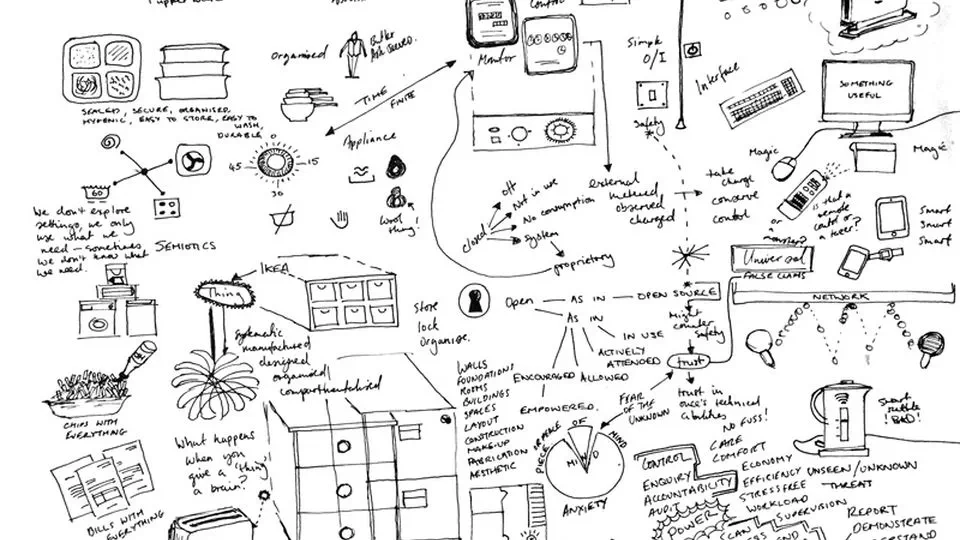 Organised
Butler
Monitor
Control
Simple
O/I
Safety
Interface
SOMETHING
USEFUL
Magic
Magic
SEALED, SECURE, ORGANISED,
HYGENIC, EASY TO STORE, EASY TO
WASH,
DURABLE
TIME
FINITE
Appliance
0
45
15
30
60
Wool
thing!
We don't explore
settings, we only
use what we
need - sometimes
we don't know what
we need.
SEMIOTICS
closed
off
Not in use
No consumption
System
proprietary
external
metered
observed
charged
take
charge
conserve
control
is that a
remote
control or
a
or
a
Smart
Smart
Smart
Universal
FALSE CLAIMS
NETWORK
IKEA
Thing
Systematic
manufactured
designed
organised/
compartmentalised
Store
lock
Organise.
Open
AS IN
OPEN SOURCE
AS IN
IN USE
ACTIVELY
ATTENDED
ALLOWED
ENCOURAGED
EMPOWERED.
Might
counter
Safety
trust
trust in
one's technical
abilities
FEAR
OF THE
UNKNOWN
WALLS
FOUNDATIONS
ROOMS
BUILDINGS
SPACES
LAYOUT
CONSTRUCTION
MAKE-UP
FABRICATION
AESTHETIC
PIECE OF
MIND
MIND
ANXIETY
CHIPS WITH
EVERYTHING
What happens
when you
give a 'thing'
a brain?
BILLS WITH
EVERYTHING
NO FUSS!
CARE
COMFORT
ECONOMY
EFFICIENCY
STRESSFREE
WORKLOAD
SUPERVISION
UNSEEN/UNKNOWN
THREAT
Smart
kettle
! BAD!
CONTROL
ENQUIRY
ACCOUNTABILITY
AUDIT
POWER
SCAN
REPORT
DEMONSTRATE